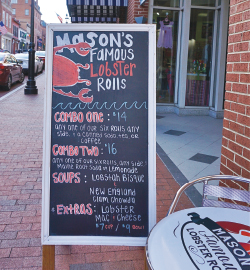 MASON'S
FAMOUS
LOBSTER
ROLLS
COMBO ONE: $14
ANY ONE OF OUR SIX ROLLS, ANY
SIDE + A CANNED SODA, TEA OR
COFFEE
COMBO TWO: $16
ANY ONE OF OUR SIX ROLLS, ANY SIDE +
MAINE ROOT SODA OR LEMONADE
SOUPS: LOBSTAH BISQUE
NEW ENGLAND
CLAM CHOWDA
EXTRAS: LOBSTER
MAC + CHEESE
LOBSTER